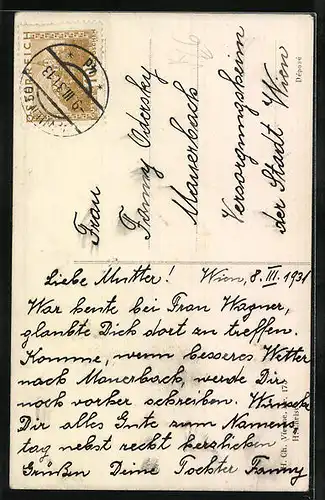 Frau
Fanny Odersky
Mauerbach
Versorgungsheim
der Stadt Wien
Déposé
Liebe Mutter! Wien, 8. III. 1931
War heute bei Frau Wagner,
glaubte Dich dort zu treffen.
Komme, wenn besseres Wetter
nach Mauerbach, werde Dir
noch vorher schreiben. Wünsche
Dir alles Gute zum Namens
tag nebst recht herzlichen
Grüßen Deine Tochter Fanny